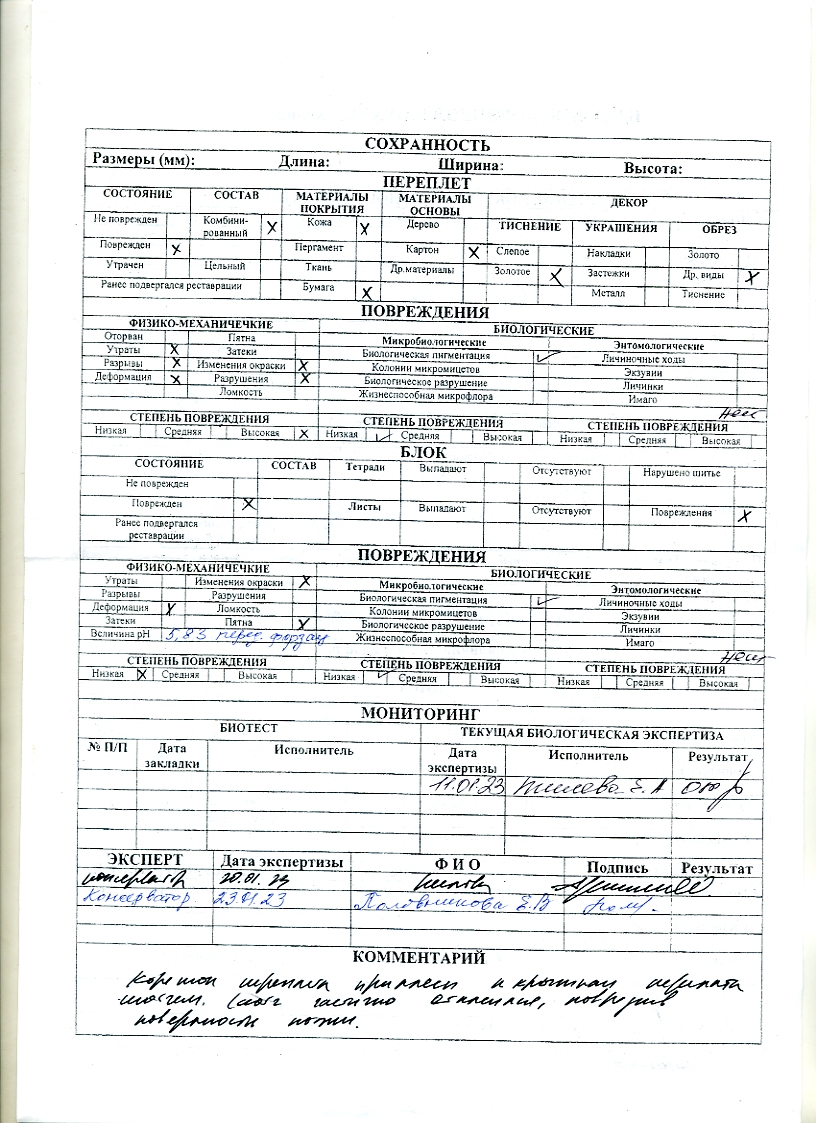 СОХРАННОСТЬ
Размеры (мм): Длина: Ширина: Высота:
ПЕРЕПЛЕТ
СОСТОЯНИЕ СОСТАВ МАТЕРИАЛЫ ПОКРЫТИЯ МАТЕРИАЛЫ ОСНОВЫ ДЕКОР
Не поврежден Комбини-рованный X Кожа X Дерево ТИСНЕНИЕ УКРАШЕНИЯ ОБРЕЗ
Поврежден X Пергамент Картон X Слепое Накладки Золото
Утрачен Цельный Ткань Др.материалы Золотое X Застежки Др. виды X
Ранее подвергался реставрации Бумага X Металл Тиснение
ПОВРЕЖДЕНИЯ
ФИЗИКО-МЕХАНИЧЕЧКИЕ БИОЛОГИЧЕСКИЕ
Оторван Пятна Микробиологические Энтомологические
Утраты X Затеки Биологическая пигментация ✓ Личиночные ходы
Разрывы X Изменения окраски X Колонии микромицетов Экзувии
Деформация X Разрушения X Биологическое разрушение Личинки
Ломкость Жизнеспособная микрофлора Имаго
нет
СТЕПЕНЬ ПОВРЕЖДЕНИЯ СТЕПЕНЬ ПОВРЕЖДЕНИЯ СТЕПЕНЬ ПОВРЕЖДЕНИЯ
Низкая Средняя Высокая X Низкая ✓ Средняя Высокая Низкая Средняя Высокая
БЛОК
СОСТОЯНИЕ СОСТАВ Тетради Выпадают Отсутствуют Нарушено шитье
Не поврежден
Поврежден X Листы Выпадают Отсутствуют Повреждения X
Ранее подвергался реставрации
ПОВРЕЖДЕНИЯ
ФИЗИКО-МЕХАНИЧЕЧКИЕ БИОЛОГИЧЕСКИЕ
Утраты Изменения окраски X Микробиологические Энтомологические
Разрывы Разрушения Биологическая пигментация ✓ Личиночные ходы
Деформация X Ломкость Колонии микромицетов Экзувии
Затеки Пятна X Биологическое разрушение Личинки
Величина pH 5,83 перед. форзац Жизнеспособная микрофлора Имаго
нет
СТЕПЕНЬ ПОВРЕЖДЕНИЯ СТЕПЕНЬ ПОВРЕЖДЕНИЯ СТЕПЕНЬ ПОВРЕЖДЕНИЯ
Низкая X Средняя Высокая Низкая ✓ Средняя Высокая Низкая Средняя Высокая
МОНИТОРИНГ
БИОТЕСТ ТЕКУЩАЯ БИОЛОГИЧЕСКАЯ ЭКСПЕРТИЗА
№ П/П Дата закладки Исполнитель Дата экспертизы Исполнитель Результат
11.01.23 Е.А
ЭКСПЕРТ Дата экспертизы Ф И О Подпись Результат
консерватор 20.01.23
Консерватор 23.01.23 Е.В
КОММЕНТАРИЙ
Корешок переплета приклеен к крышкам переплета
скотчем. Скотч частично отклеился, повредив
поверхность кожи.